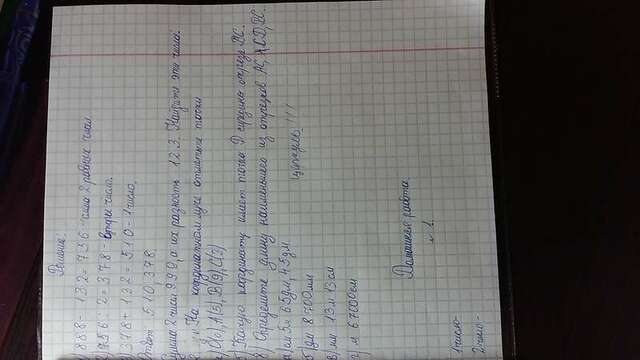 Решение:
) 888 - 132 = 756 - сумма 2 равных чисел
) 756 : 2 = 378 - второе число.
) 378 + 132 = 510 - 1 число,
Ответ 510, 378.
Сумма 2 чисел 999, а их разность 123. Найдите эти числа.
На координатном луче отметьте точки
а) О(0), А(5), В(9), С(3)
б) Какую координату имеет точка D середины отрезка ВС.
в) Определите длину наименьшего из отрезков АС, CD, ВС.
а) см 5м 65дм, 45дм
циркуль!!!
б) дм 8 700мм
в) мм 13м 13см
г) м 67000см
Домашняя работа.
№ 1.
1 число-
2 число-